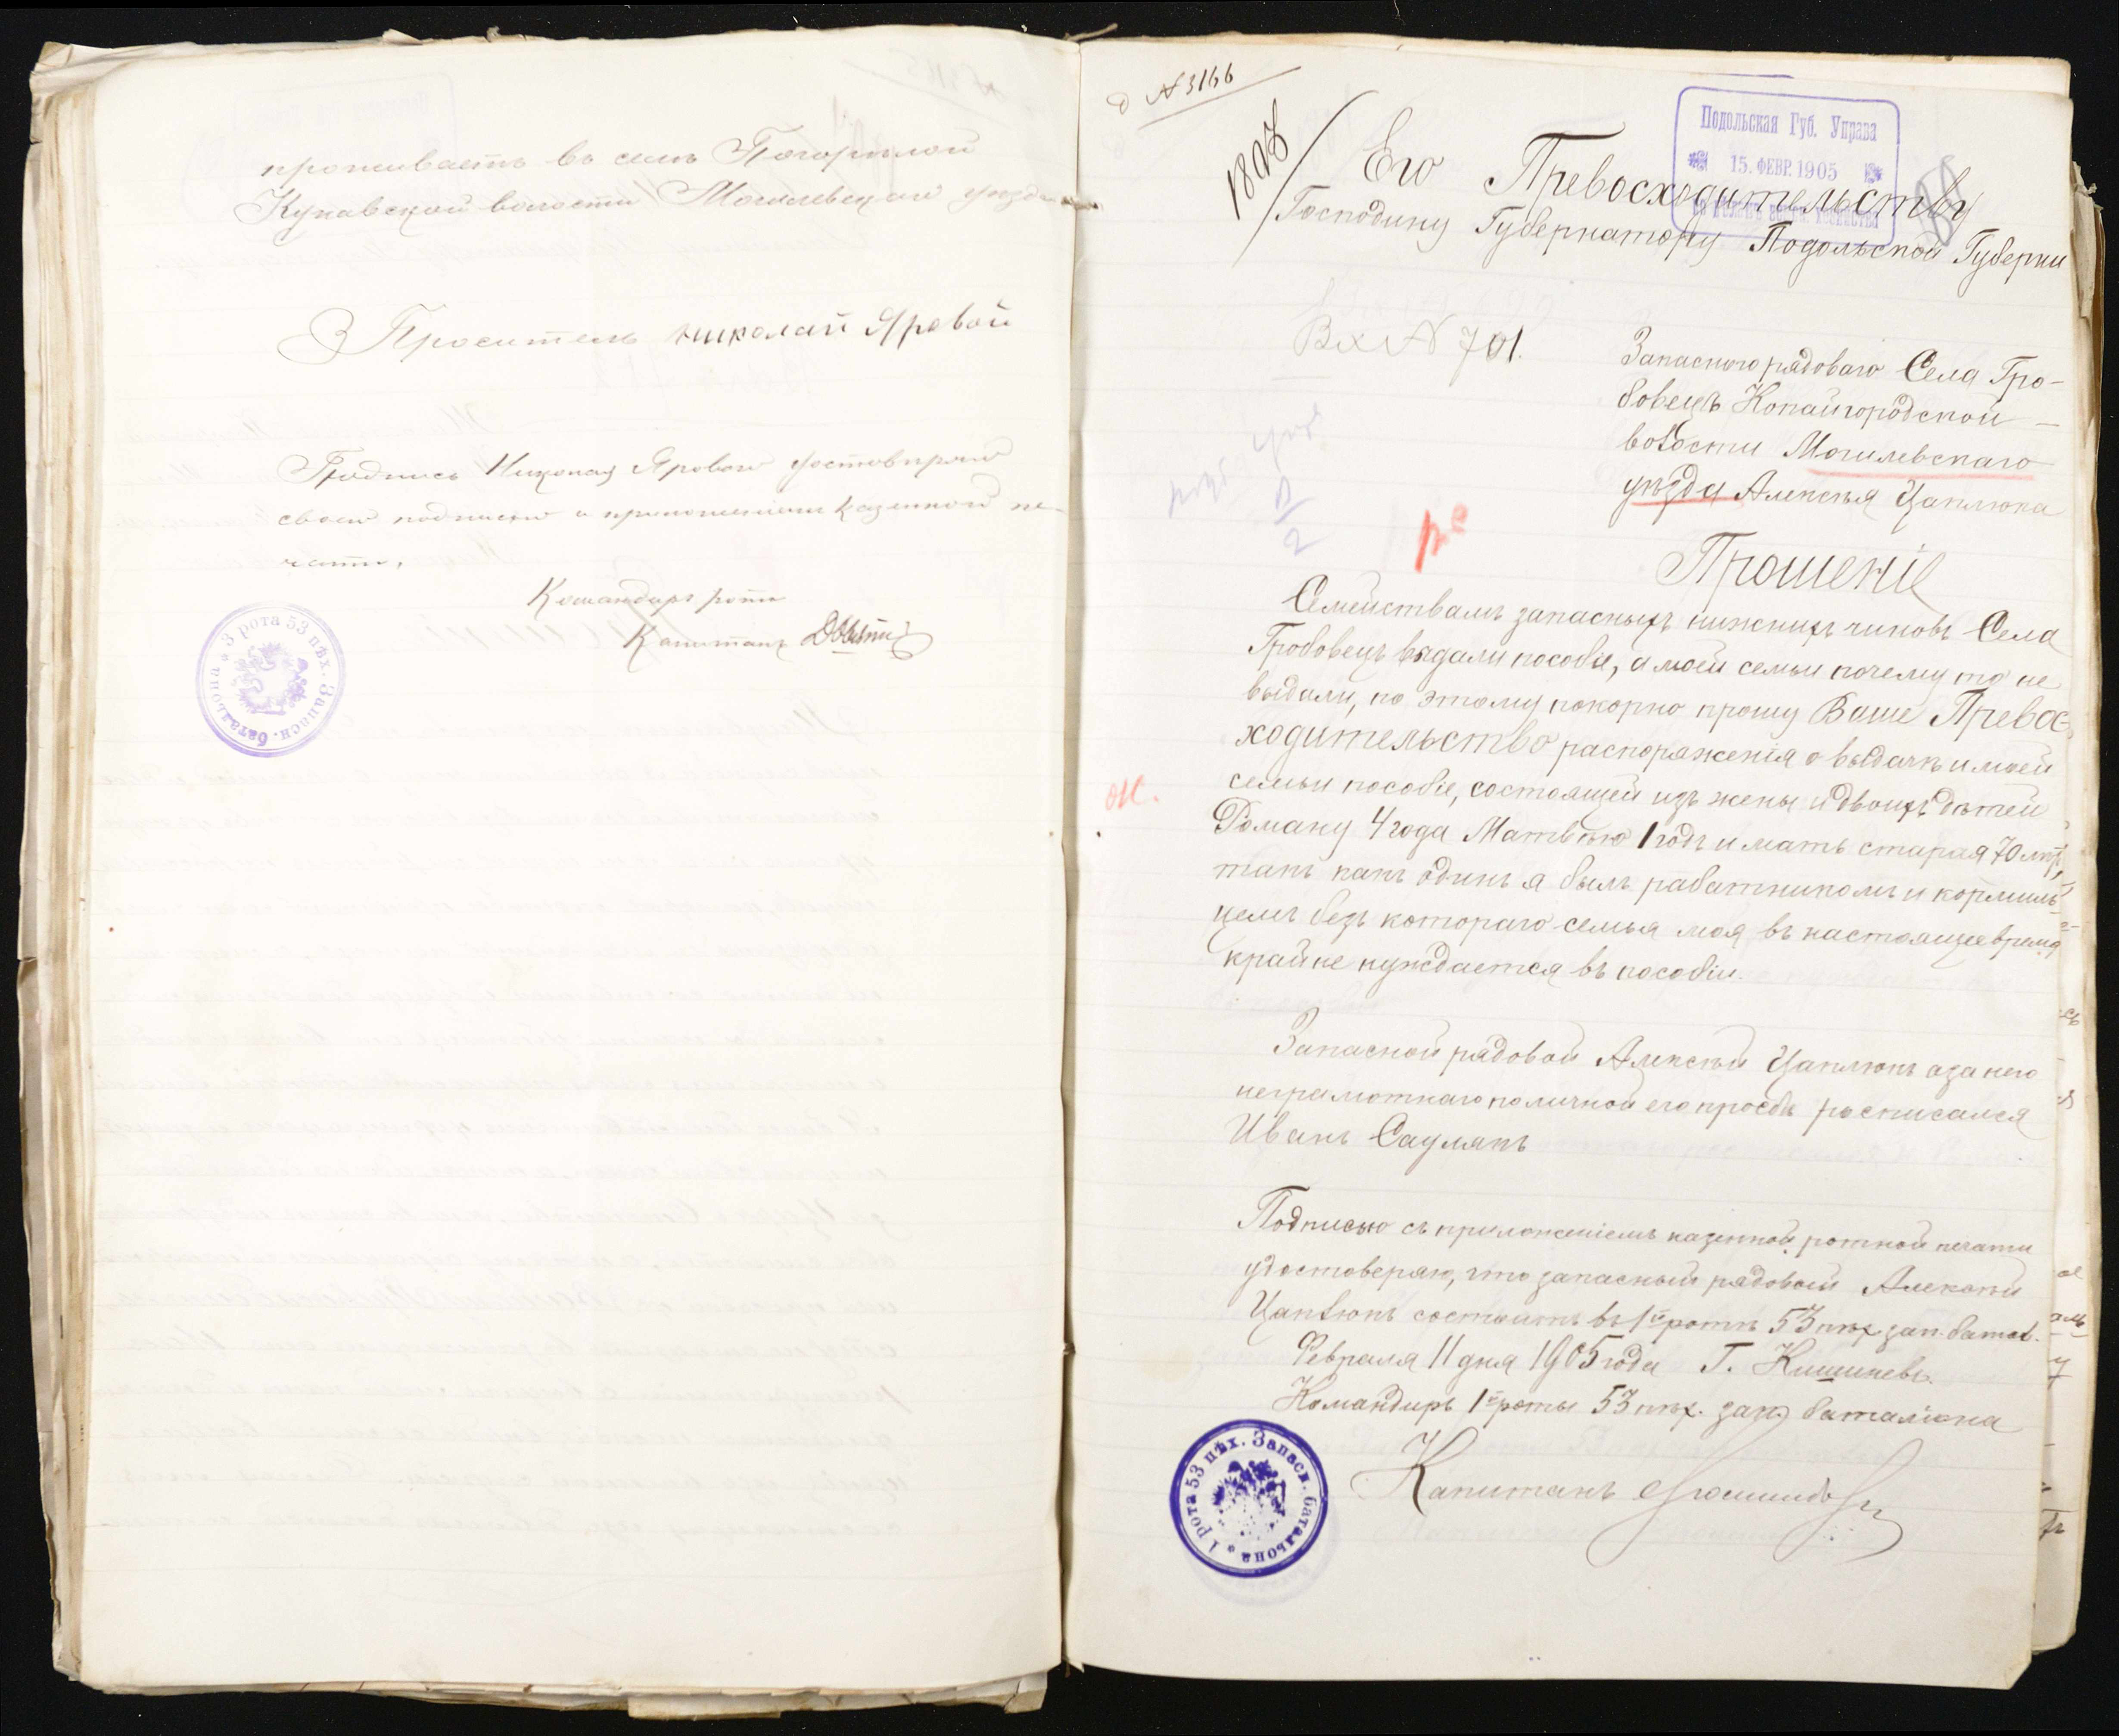 проживаетъ въ селѣ Погорѣлой
Кукавской волости Могилевскаго уѣзда
Проситель Николай Яровой
Подпись Николая Ярового удостовѣряю
своею подписью и приложеніемъ казенной пе-
чати.
Командиръ роты
Капитанъ
3 рота 53 пѣх. Запасн. баталъона
№ 3166
Подольская Губ. Управа
15. ФЕВР. 1905
Его Превосходительству
Господину Губернатору Подольской Губерни
Вх № 701.
Запасного рядоваго Села Гро-
бовецъ Копайгородской
волости Могилевскаго
уѣзда Алексѣя Цаплюка
Прошеніе
Семействамъ запасныхъ нижнихъ чиновъ Села
Гробовецъ выдали пособіе, а моей семьи почему то не
выдали, по этому покорно прошу Ваше Превос-
ходительство распоряженія о выдачѣ и моей
семьи пособіе, состоящей изъ жены и двоихъ дѣтей
Роману 4 года Матвѣю 1 годъ и мать старая 70 лѣтъ,
такъ какъ одинъ я былъ работникомъ и кормиль-
цемъ безъ котораго семья моя въ настоящее время
крайне нуждается въ пособіи.
Запасной рядовой Алексѣй Цаплюкъ а за него
неграмотнаго по личной его просьбѣ росписался
Иванъ Саулякъ
Подписью съ приложеніемъ казенной ротной печати
удостоверяю, что запасный рядовой Алексѣй
Цаплюкъ состоитъ въ 1й ротѣ 53 пѣх зап. батал.
Февраля 11 дня 1905 года Г. Кишиневъ.
Командиръ 1й роты 53 пѣх. зап. баталіона
Капитанъ
1 рота 53 пѣх. Запасн. баталъона